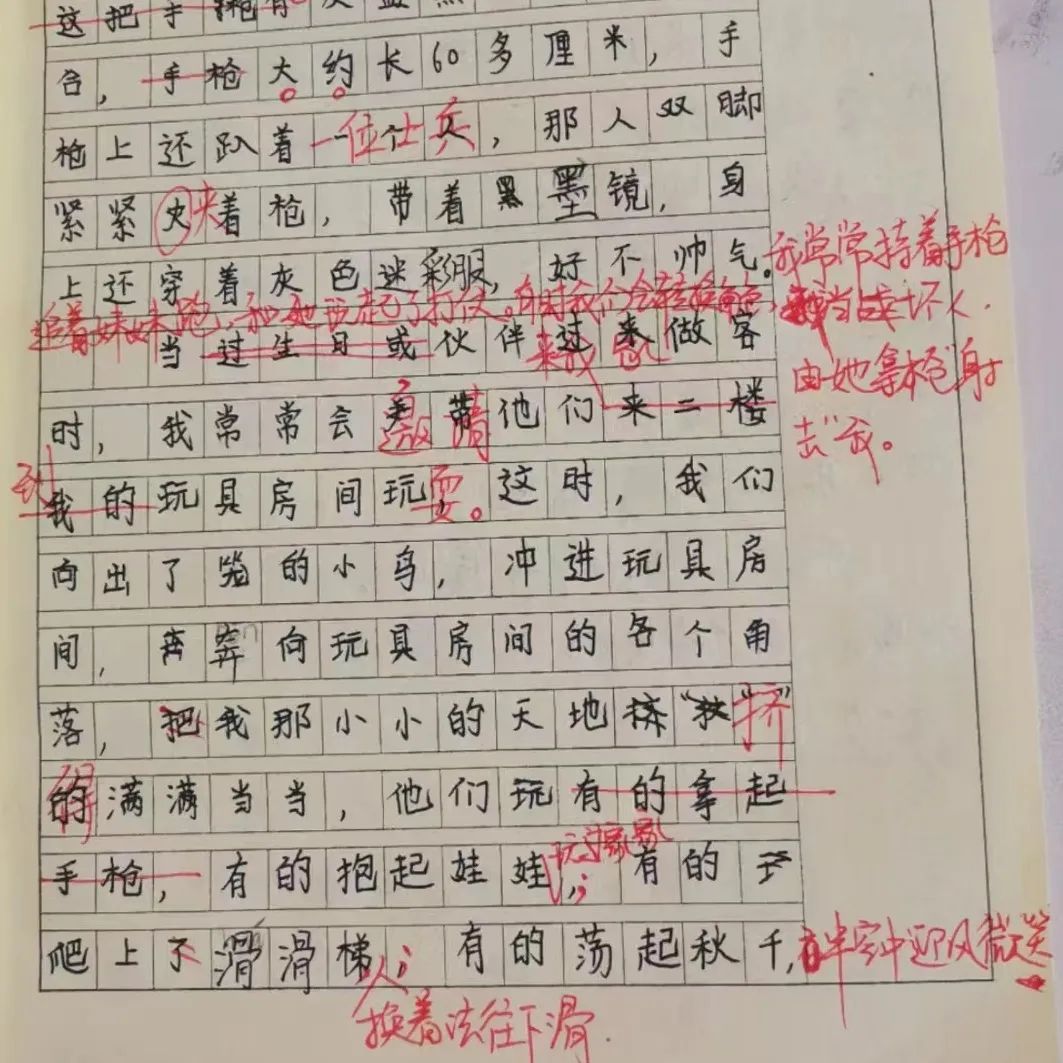 这把手枪有
合，手枪大约长60多厘米，手
枪上还趴着一位士兵，那人双脚
紧紧夹着枪，带着黑墨镜，身
上还穿着灰色迷彩服，好不帅气。我常常持着手枪
追着妹妹跑，和她玩起了打仗。有时我们会转换角色，我当坏人，
由她拿枪"射
去"我。
当过生日或伙伴过来做客
来我家
时，我常常会邀请带他们来二楼
到
我的玩具房间玩耍。这时，我们
向出了笼的小鸟，冲进玩具房
间，奔向玩具房间的各个角
落，把我那小小的天地挤"挤"
得满满当当，他们玩有的拿起
玩过家家
手枪，有的抱起娃娃，有的
爬上了滑滑梯，有的荡起秋千，在半空中迎风微笑
换着法往下滑.